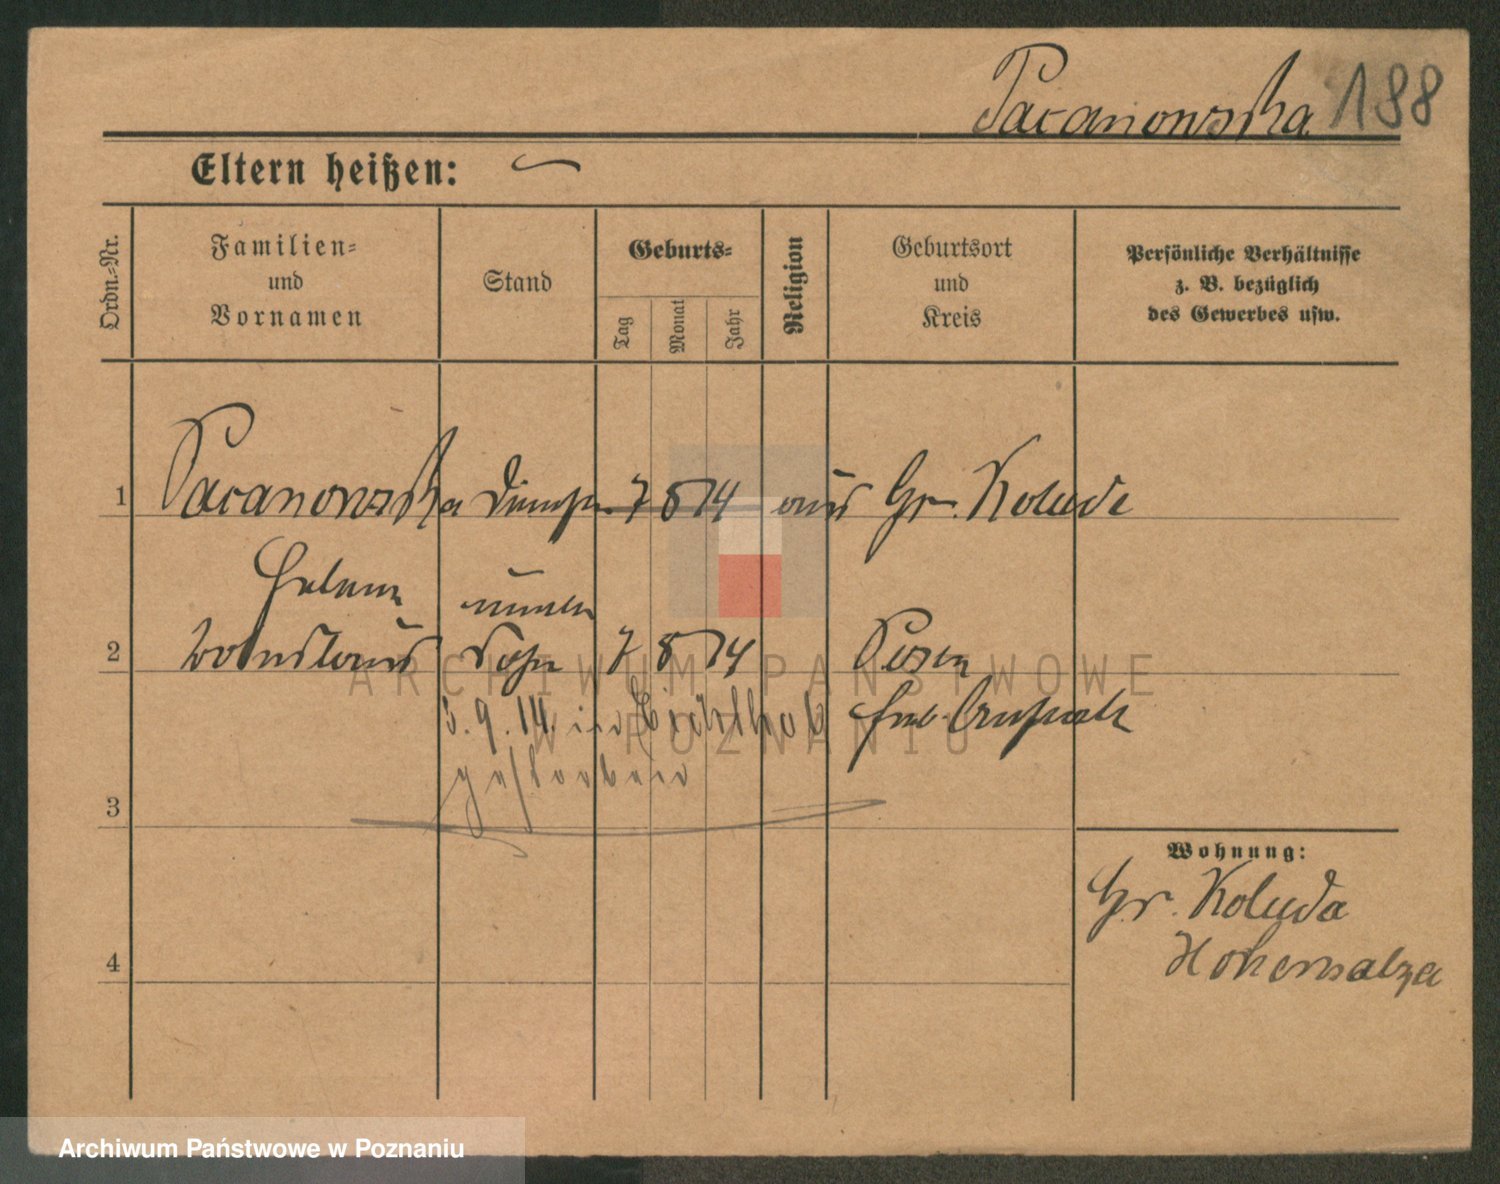 Pacanowska 188
Eltern heißen:
Ordn.-Nr.
Familien-
und
Vornamen
Stand
Geburts-
Tag
Monat
Jahr
Religion
Geburtsort
und
Kreis
Persönliche Verhältnisse
z. B. bezüglich
des Gewerbes usw.
1 Pacanowska 7 8 14 aus Gr. Kolude
Helene
2 Sohn 7 8 14 Posen
5.9.14. in Eichthal
gestorben
3
Wohnung:
Gr. Koluda
Hohensalza
4
ARCHIWUM PAŃSTWOWE
W POZNANIU
Archiwum Państwowe w Poznaniu